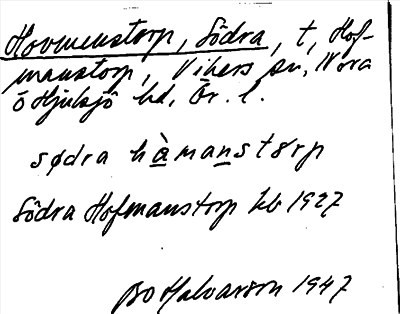 Hovmenstorp, Södra, t, Hof-
manstorp, Vikers sn, Nora
ö Hjulsjö hd, Ör. l.
sødra hàmanstørp
Södra Hofmanstorp kb 1927
Bo Halvarson 1947